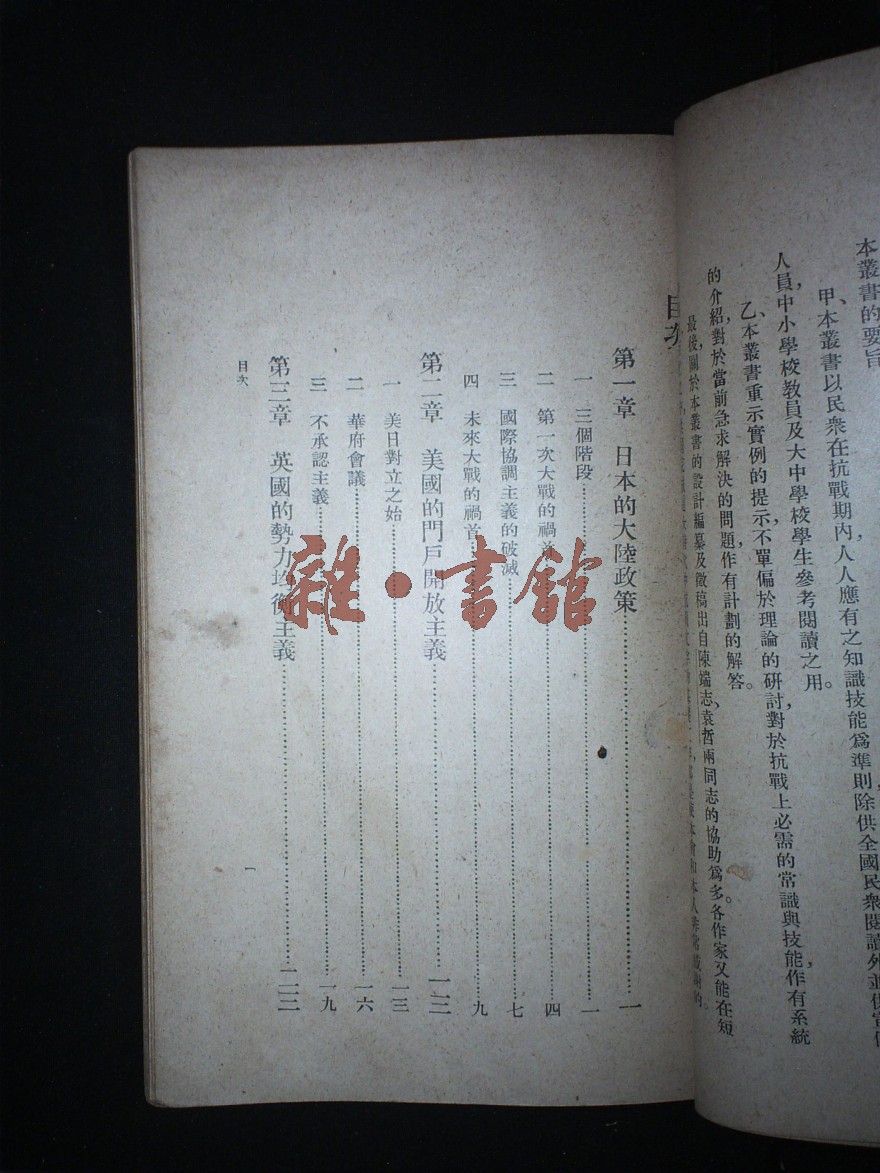 本叢書的要旨
甲、本叢書以民衆在抗戰期內，人人應有之知識技能爲準則除供全國民衆閱讀外，並供宣傳
人員，中小學校教員及大中學校學生參考閱讀之用。
乙、本叢書重示實例的提示，不單偏於理論的研討，對於抗戰上必需的常識與技能，作有系統
的介紹，對於當前急求解決的問題，作有計劃的解答。
最後，關於本叢書的設計編纂及徵稿出自陳端志、袁哲兩同志的協助爲多。各作家又能在短
目次
第一章 日本的大陸政策……一
一 三個階段……一
二 第一次大戰的禍首……四
三 國際協調主義的破滅……七
四 未來大戰的禍首……九
第二章 美國的門戶開放主義……一三
一 美日對立之始……一三
二 華府會議……一六
三 不承認主義……一九
第三章 英國的勢力均衡主義……二二
目次
一
雜·書館